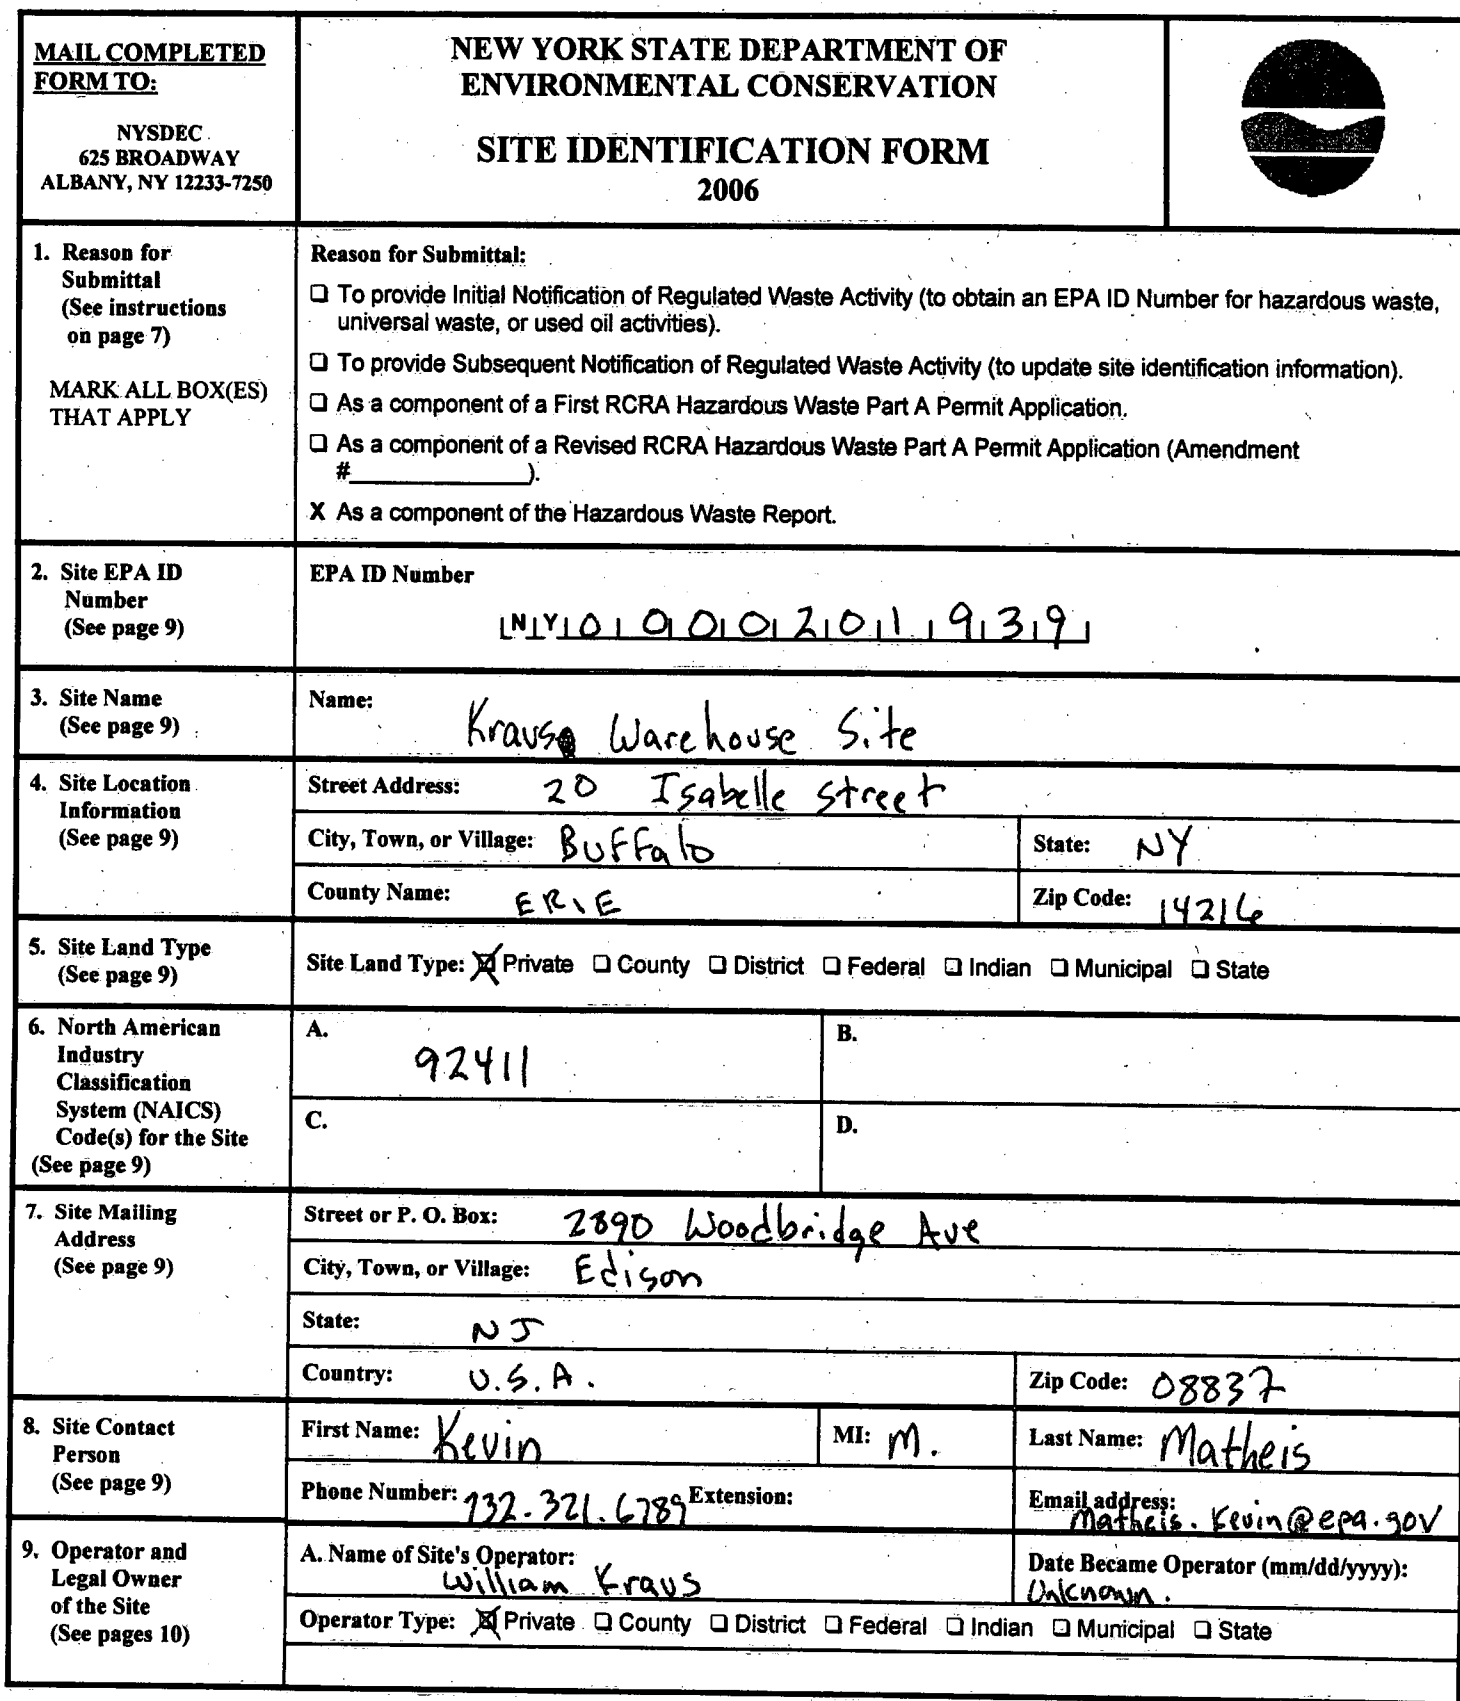 MAIL COMPLETED
FORM TO:
NYSDEC
625 BROADWAY
ALBANY, NY 12233-7250
NEW YORK STATE DEPARTMENT OF
ENVIRONMENTAL CONSERVATION
SITE IDENTIFICATION FORM
2006
1. Reason for
Submittal
(See instructions
on page 7)
MARK ALL BOX(ES)
THAT APPLY
Reason for Submittal:
❑ To provide Initial Notification of Regulated Waste Activity (to obtain an EPA ID Number for hazardous waste,
universal waste, or used oil activities).
❑ To provide Subsequent Notification of Regulated Waste Activity (to update site identification information).
❑ As a component of a First RCRA Hazardous Waste Part A Permit Application.
❑ As a component of a Revised RCRA Hazardous Waste Part A Permit Application (Amendment
#______________).
X As a component of the Hazardous Waste Report.
2. Site EPA ID
Number
(See page 9)
EPA ID Number
NY0000201939
3. Site Name
(See page 9)
Name: Kraus Warehouse Site
4. Site Location
Information
(See page 9)
Street Address: 20 Isabelle Street
City, Town, or Village: Buffalo State: NY
County Name: ERIE Zip Code: 14216
5. Site Land Type
(See page 9)
Site Land Type: ☒ Private ❑ County ❑ District ❑ Federal ❑ Indian ❑ Municipal ❑ State
6. North American
Industry
Classification
System (NAICS)
Code(s) for the Site
(See page 9)
A. 92411 B.
C. D.
7. Site Mailing
Address
(See page 9)
Street or P. O. Box: 2890 Woodbridge Ave
City, Town, or Village: Edison
State: NJ
Country: U.S.A. Zip Code: 08837
8. Site Contact
Person
(See page 9)
First Name: Kevin MI: M. Last Name: Matheis
Phone Number: 732.321.6789 Extension: Email address: Matheis.Kevin@epa.gov
9. Operator and
Legal Owner
of the Site
(See pages 10)
A. Name of Site's Operator: William Kraus
Date Became Operator (mm/dd/yyyy): Unknown.
Operator Type: ☒ Private ❑ County ❑ District ❑ Federal ❑ Indian ❑ Municipal ❑ State